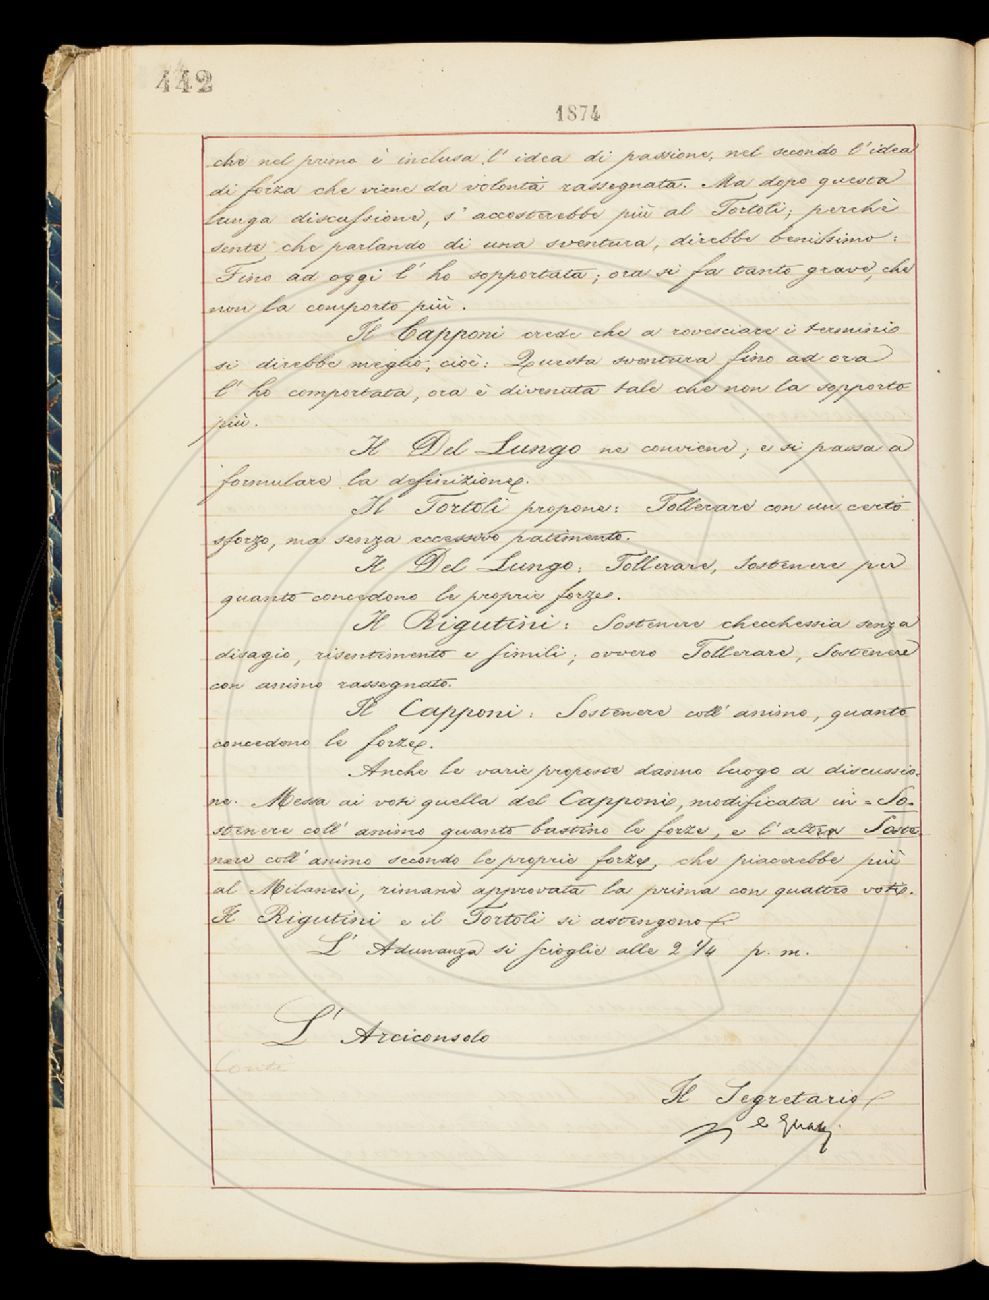 442
1874
che nel primo è inclusa l'idea di passione, nel secondo l'idea
di forza che viene da volontà rassegnata. Ma dopo questa
lunga discussione, s'accosterebbe più al Tortoli; perchè
sente che parlando di una sventura, direbbe benissimo:
Fino ad oggi l'ho sopportata; ora si fa tanto grave, che
non la comporto più.
Il Capponi crede che a rovesciare i termini
si direbbe meglio, cioè: Questa sventura fino ad ora
l'ho comportata, ora è divenuta tale che non la sopporto
più.
Il Del Lungo ne conviene; e si passa a
formulare la definizione.
Il Tortoli propone: Tollerare con un certo
sforzo, ma senza eccessivo patimento.
Il Del Lungo: Tollerare, Sostenere per
quanto concedono le proprie forze.
Il Rigutini: Sostenere checchessia senza
disagio, risentimento e simili; ovvero Tollerare, Sostenere
con animo rassegnato.
Il Capponi: Sostenere coll'animo, quanto
concedono le forze.
Anche le varie proposte danno luogo a discussio-
ne. Messa ai voti quella del Capponi, modificata in = So-
stenere coll'animo quanto bastino le forze, e l'altra Soste-
nere coll'animo secondo le proprie forze, che piacerebbe più
al Milanesi, rimane approvata la prima con quattro voti.
Il Rigutini e il Tortoli si astengono.
L'Adunanza si scioglie alle 2 1/4 p. m.
L'Arciconsolo
Conti
Il Segretario